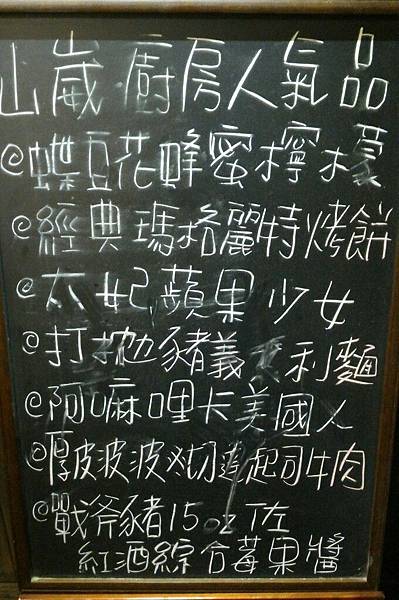 山崴.廚房人氣品
@蝶豆花蜂蜜檸檬
@經典瑪格麗特烤餅
@太妃蘋果少女
@打拋豬義大利麵
@阿嘛哩卡美國人
@厚皮波波 起司牛肉
@戰斧豬15oz 佐
紅酒綜合莓果醬